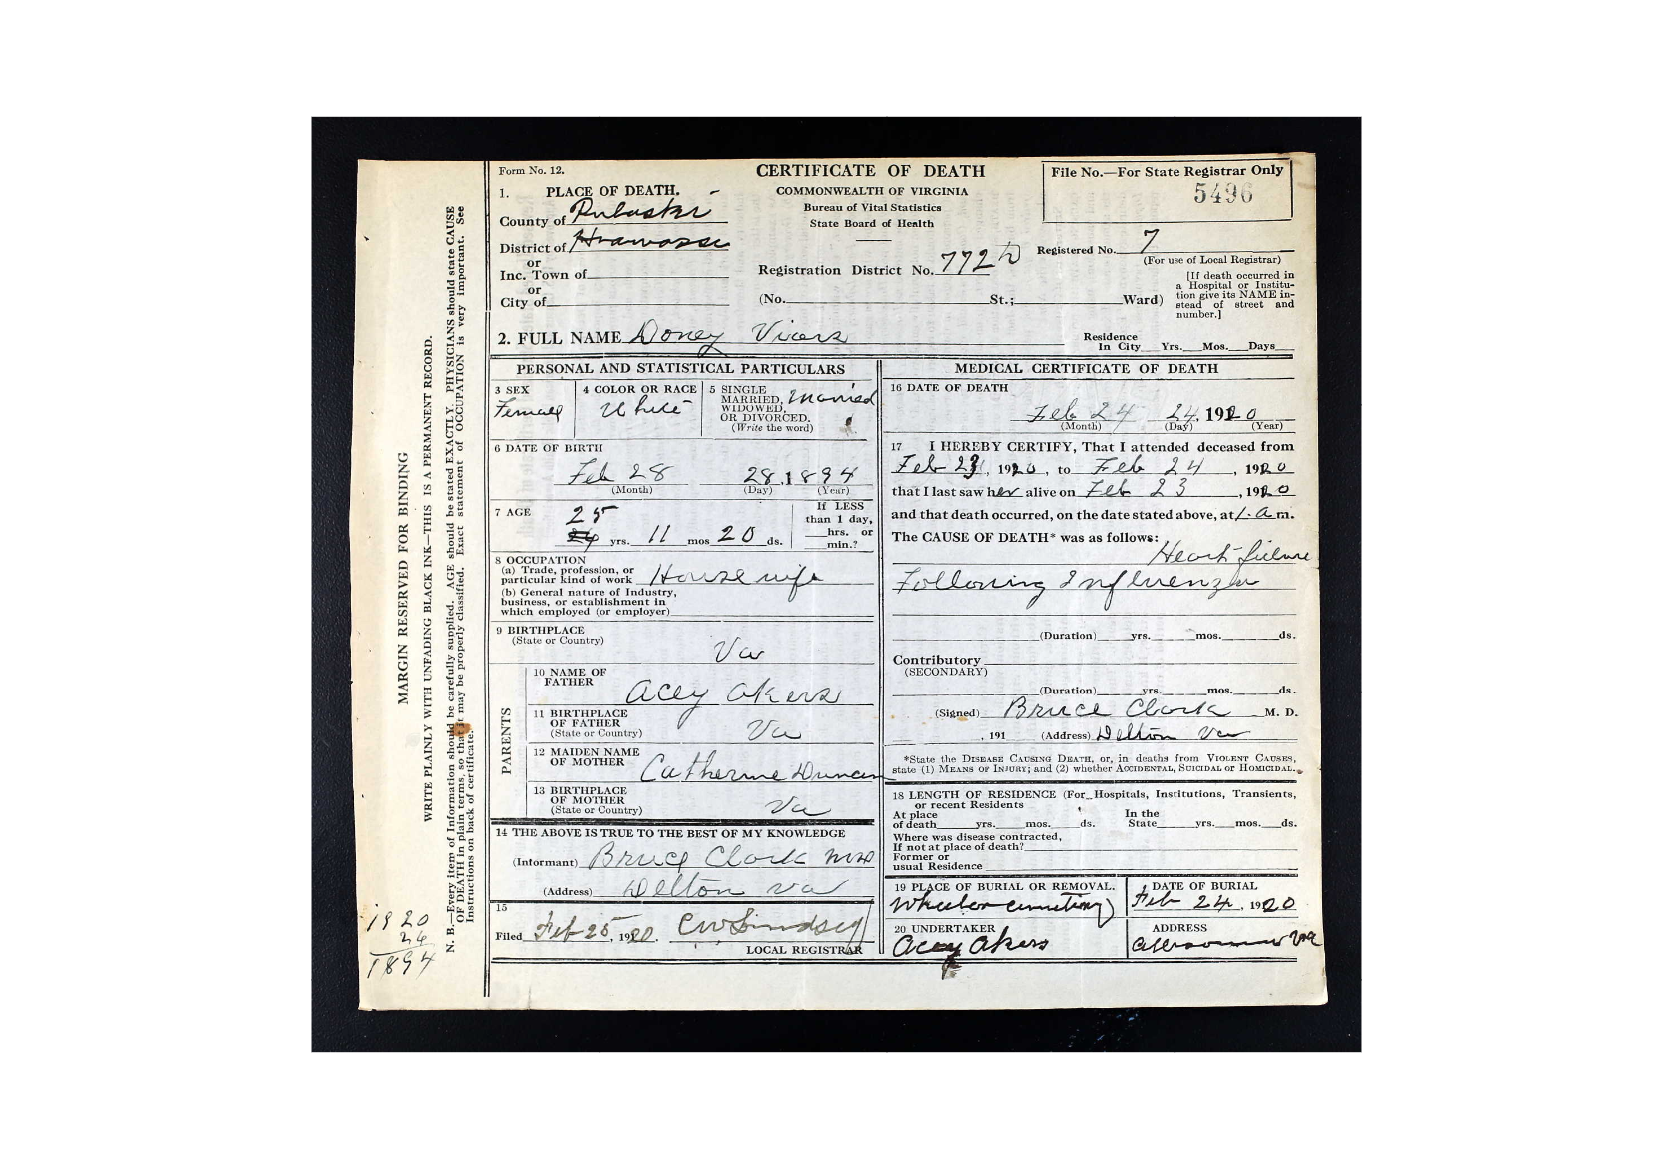 Form No. 12.
CERTIFICATE OF DEATH
COMMONWEALTH OF VIRGINIA
Bureau of Vital Statistics
State Board of Health
File No.—For State Registrar Only
5496
1. PLACE OF DEATH.
County of Pulaski
District of Hiawassee
or
Inc. Town of
or
City of
Registration District No. 772 D
Registered No. 7
(For use of Local Registrar)
(No. St.; Ward)
[If death occurred in
a Hospital or Institu-
tion give its NAME in-
stead of street and
number.]
2. FULL NAME Doney Vicars
Residence
In City Yrs. Mos. Days
PERSONAL AND STATISTICAL PARTICULARS
3 SEX
Female
4 COLOR OR RACE
White
5 SINGLE
MARRIED,
WIDOWED,
OR DIVORCED.
(Write the word)
Married
6 DATE OF BIRTH
Feb 28 28, 1894
(Month) (Day) (Year)
7 AGE
25
24 yrs. 11 mos 20 ds.
If LESS
than 1 day,
hrs. or
min.?
8 OCCUPATION
(a) Trade, profession, or
particular kind of work House wife
(b) General nature of Industry,
business, or establishment in
which employed (or employer)
9 BIRTHPLACE
(State or Country)
Va
PARENTS
10 NAME OF
FATHER
Acey Akers
11 BIRTHPLACE
OF FATHER
(State or Country)
Va
12 MAIDEN NAME
OF MOTHER
Catherine Duncan
13 BIRTHPLACE
OF MOTHER
(State or Country)
Va
14 THE ABOVE IS TRUE TO THE BEST OF MY KNOWLEDGE
(Informant) Bruce Clark
(Address) Delton Va
15
Filed Feb 25, 1920. CW Lindsey
LOCAL REGISTRAR
MEDICAL CERTIFICATE OF DEATH
16 DATE OF DEATH
Feb 24 24, 1920
(Month) (Day) (Year)
17 I HEREBY CERTIFY, That I attended deceased from
Feb 23, 1920, to Feb 24, 1920
that I last saw her alive on Feb 23, 1920
and that death occurred, on the date stated above, at 1. a m.
The CAUSE OF DEATH* was as follows:
Heart failure
Following Influenza
(Duration) yrs. mos. ds.
Contributory
(SECONDARY)
(Duration) yrs. mos. ds.
(Signed) Bruce Clark M. D.
, 191 (Address) Delton Va
*State the DISEASE CAUSING DEATH, or, in deaths from VIOLENT CAUSES,
state (1) MEANS OF INJURY; and (2) whether ACCIDENTAL, SUICIDAL or HOMICIDAL.
18 LENGTH OF RESIDENCE (For Hospitals, Institutions, Transients,
or recent Residents
At place In the
of death yrs. mos. ds. State yrs. mos. ds.
Where was disease contracted,
If not at place of death?
Former or
usual Residence
19 PLACE OF BURIAL OR REMOVAL.
Wheeler cemetery
DATE OF BURIAL
Feb 24, 1920
20 UNDERTAKER
Acey Akers
ADDRESS
Va
MARGIN RESERVED FOR BINDING
WRITE PLAINLY WITH UNFADING BLACK INK—THIS IS A PERMANENT RECORD.
N. B.—Every item of Information should be carefully supplied. AGE should be stated EXACTLY. PHYSICIANS should state CAUSE
OF DEATH in plain terms, so that it may be properly classified. Exact statement of OCCUPATION is very important. See
Instructions on back of certificate.
1920
26
1894